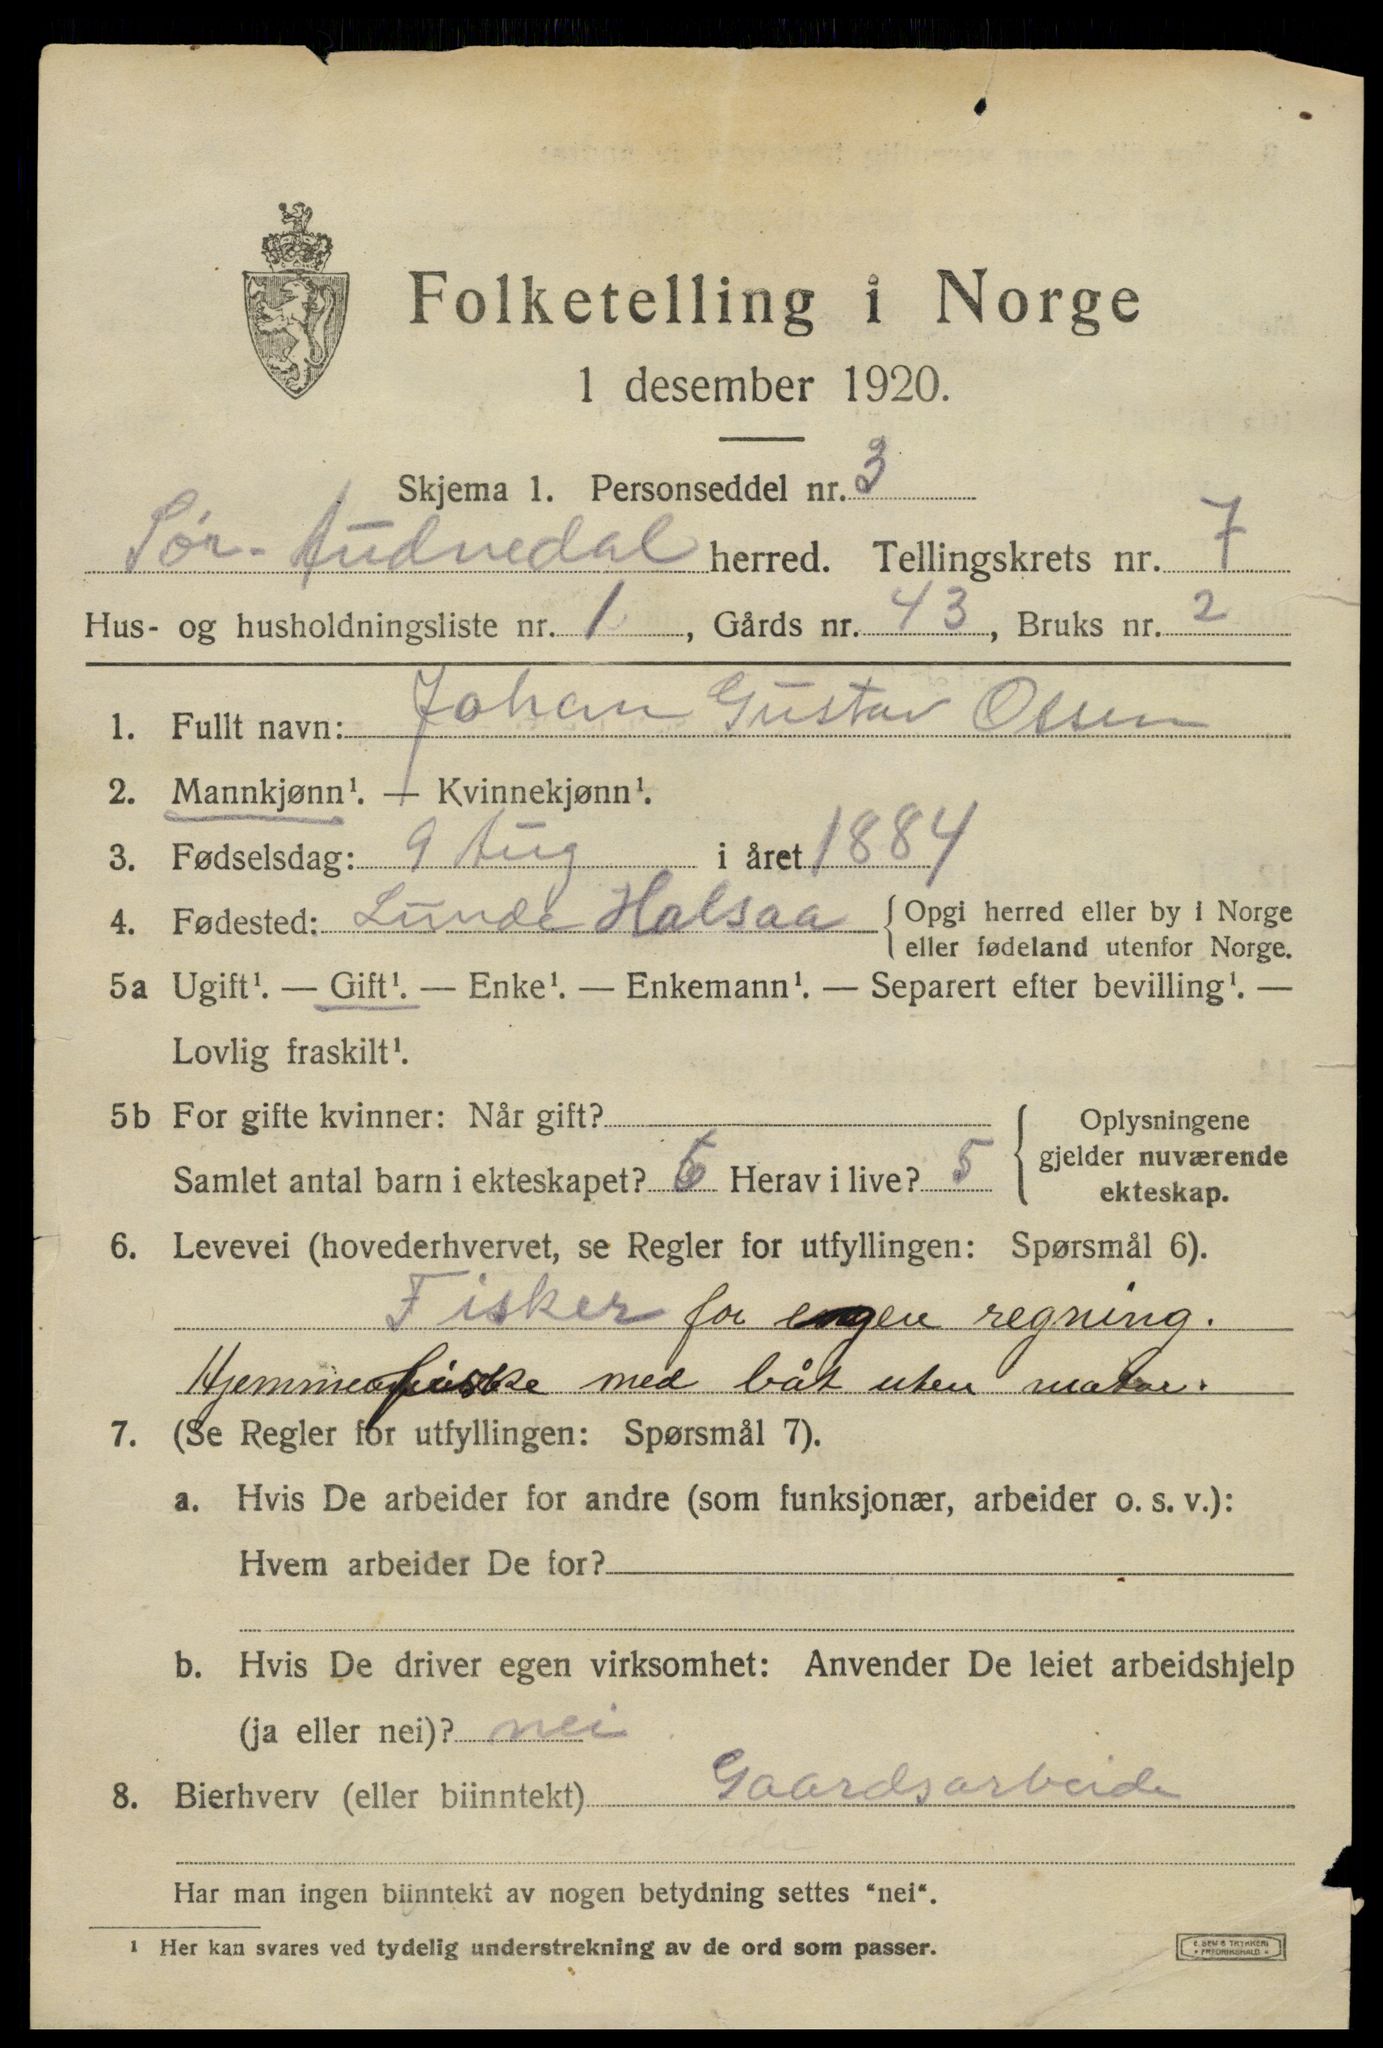 Folketelling i Norge
1 desember 1920.
Skjema 1. Personseddel nr. 3
Sør-Audnedal herred. Tellingskrets nr. 7
Hus- og husholdningsliste nr. 1, Gårds nr. 43, Bruks nr. 2
1. Fullt navn: Johan Gustav Olsen
2. Mannkjønn¹. — Kvinnekjønn¹.
3. Fødselsdag: 9 Aug i året 1884
4. Fødested: Lunde Halsaa {Opgi herred eller by i Norge
eller fødeland utenfor Norge.
5a Ugift¹. — Gift¹. — Enke¹. — Enkemann¹. — Separert efter bevilling¹. —
Lovlig fraskilt¹.
5b For gifte kvinner: Når gift?
Samlet antal barn i ekteskapet? Herav i live? 5
{Oplysningene
gjelder nuværende
ekteskap.
6. Levevei (hovederhvervet, se Regler for utfyllingen: Spørsmål 6).
Fisker for egen regning.
Hjemmefiske med båt uten motor.
7. (Se Regler for utfyllingen: Spørsmål 7).
a. Hvis De arbeider for andre (som funksjonær, arbeider o. s. v.):
Hvem arbeider De for?
b. Hvis De driver egen virksomhet: Anvender De leiet arbeidshjelp
(ja eller nei)? nei
8. Bierhverv (eller biinntekt) Gaardsarbeide
Har man ingen biinntekt av nogen betydning settes "nei".
¹ Her kan svares ved tydelig understrekning av de ord som passer.
E. SEM'S TRYKKERI
• FREDRIKSHALD •